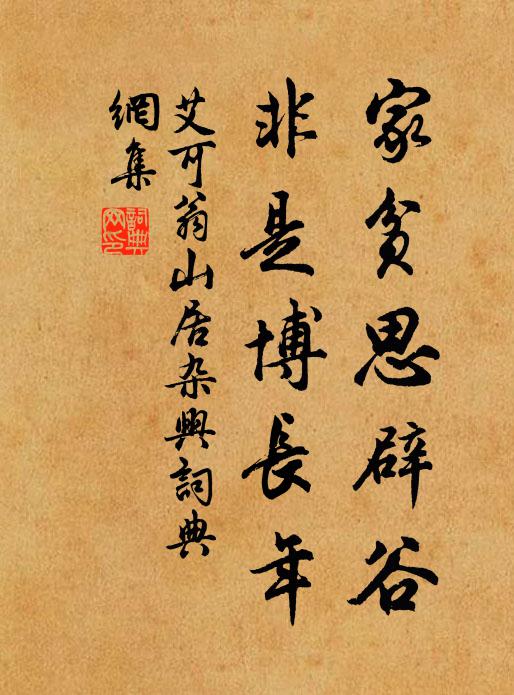 家貧思辟谷
非是博長年
艾可翁山居杂興詞典
網集
詞典
网印